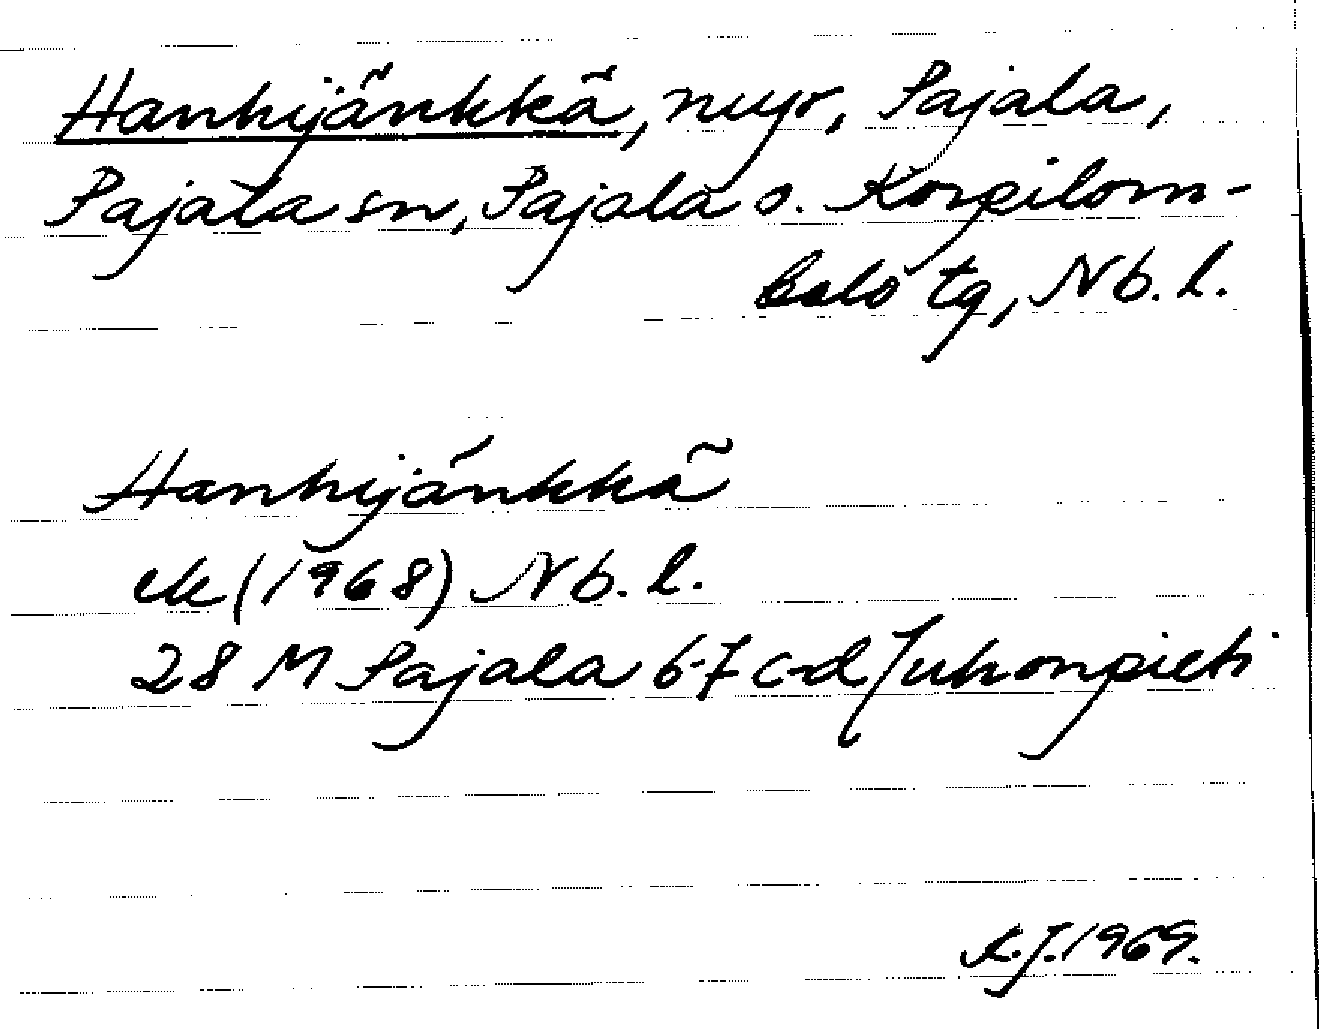 Hanhijänkkä, myr, Pajala,
Pajala sn, Pajala o. Korpilom-
bolo tg, Nb. l.
Hanhijänkkä
ek (1968) Nb. l.
28 M Pajala 6-7 c-d Juhonpieti
K.J. 1969.